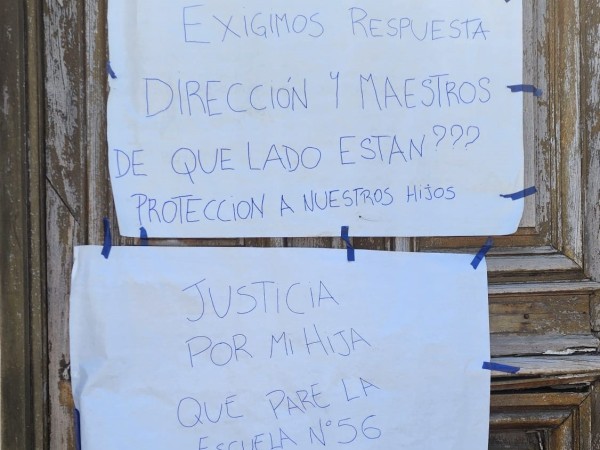 EXIGIMOS RESPUESTA
DIRECCIÓN Y MAESTROS
DE QUE LADO ESTAN???
PROTECCION A NUESTROS HIJOS
JUSTICIA
POR MI HIJA
QUE PARE LA
ESCUELA N°56